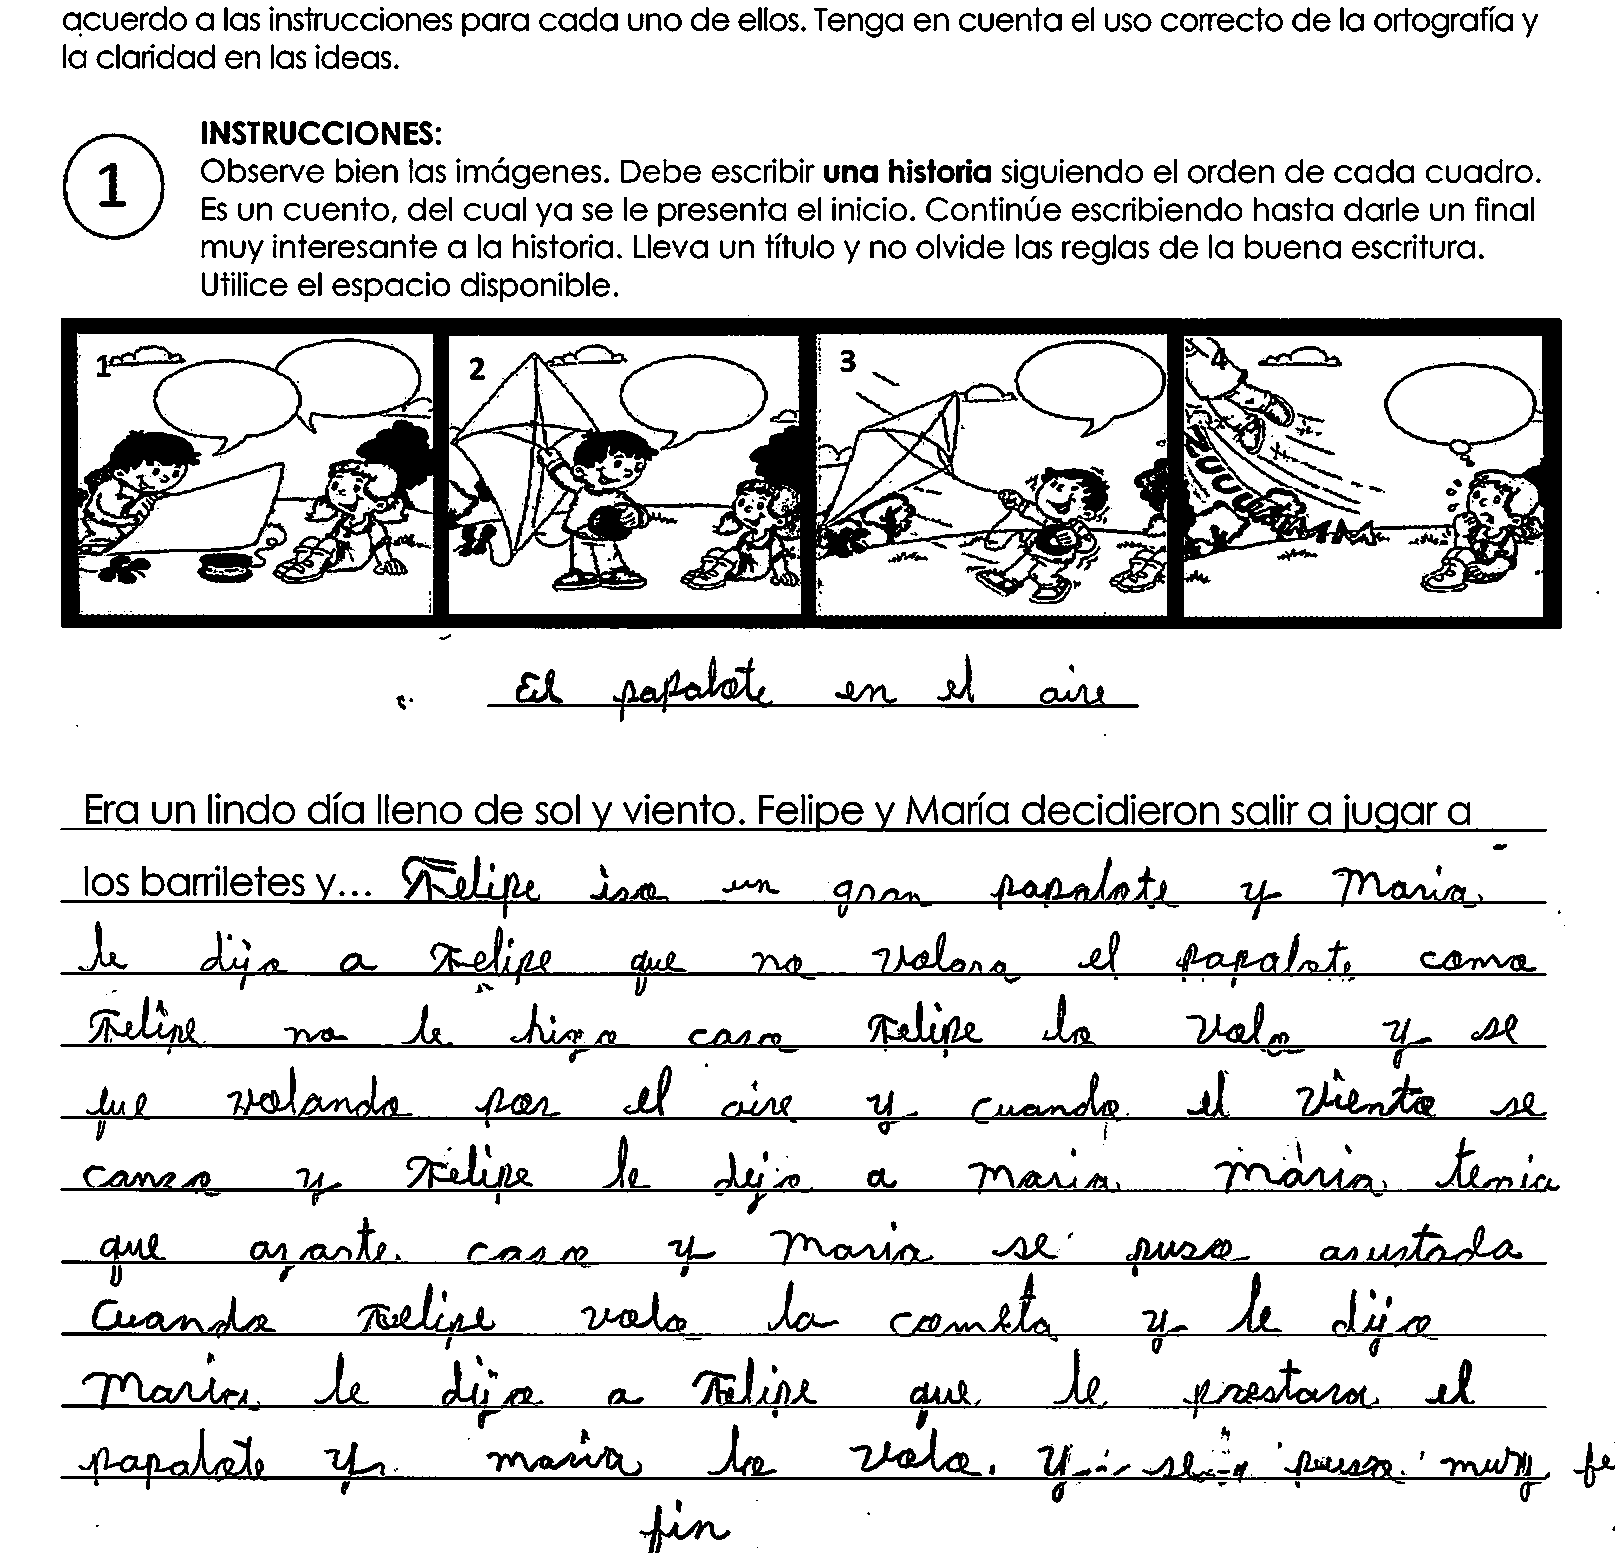 acuerdo a las instrucciones para cada uno de ellos. Tenga en cuenta el uso correcto de la ortografía y
la claridad en las ideas.
1
INSTRUCCIONES:
Observe bien las imágenes. Debe escribir una historia siguiendo el orden de cada cuadro.
Es un cuento, del cual ya se le presenta el inicio. Continúe escribiendo hasta darle un final
muy interesante a la historia. Lleva un título y no olvide las reglas de la buena escritura.
Utilice el espacio disponible.
1 2 3 4
El papalote en el aire
Era un lindo día lleno de sol y viento. Felipe y María decidieron salir a jugar a
los barriletes y... Felipe iso un gran papalote y Maria
le dijo a Felipe que no volara el papalote como
Felipe no le hizo caso Felipe lo volo y se
fue volando por el aire y cuando el viento se
canso y Felipe le dijo a Maria Maria tenia
que asarte caso y Maria se puso asustada
Cuando Felipe volo la cometa y le dijo
Maria le dijo a Felipe que le prestara el
papalote y maria lo volo. y se puso muy fe
fin